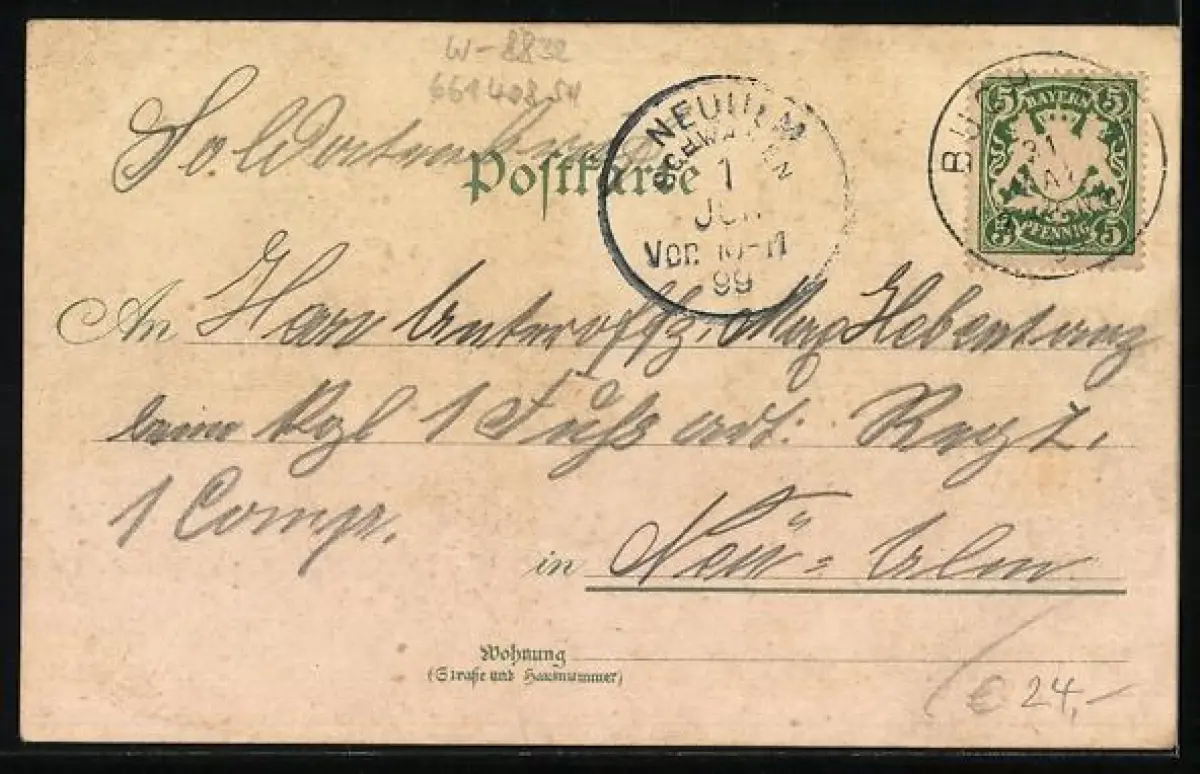 W-8832
66140854
Soldatenbrief
Postkarte
NEUULM
SCHWABEN
1
JUN
Vor. 10-11
99
5 BAYERN 5
5 PFENNIG 5
An Herrn Unteroffz. Max
beim Kgl 1 Fuß art. Regt.
1 Comp.
in Neu-Ulm
Wohnung
(Straße und Hausnummer)
€ 24,-